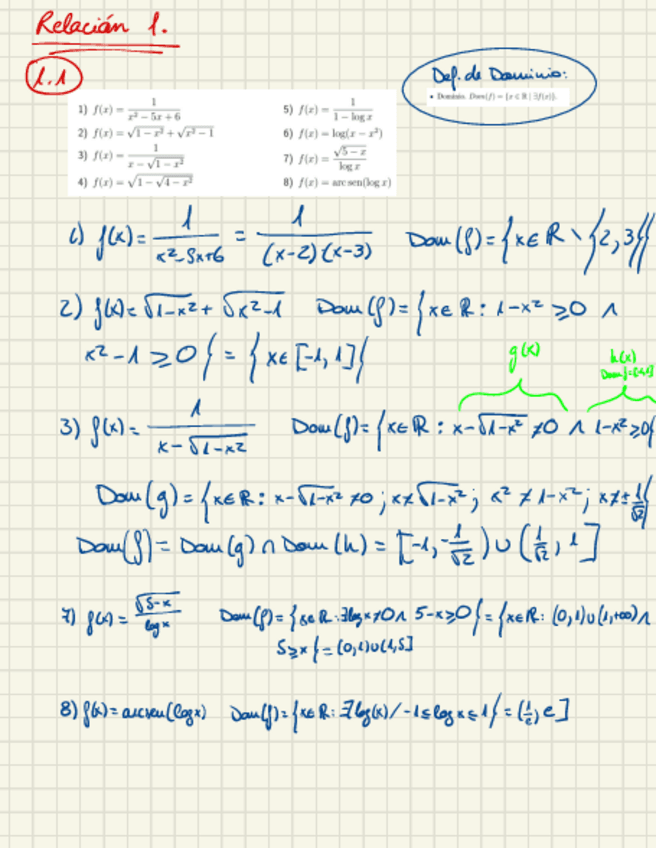 Relación 1.
1.1
Def. de Dominio:
• Dominio. Dom(f) = {x ∈ ℝ | ∃f(x)}.
1) f(x) = 1/(x² − 5x + 6)
2) f(x) = √(1 − x²) + √(x² − 1)
3) f(x) = 1/(x − √(1 − x²))
4) f(x) = √(1 − √(4 − x²))
5) f(x) = 1/(1 − log x)
6) f(x) = log(x − x²)
7) f(x) = √(5 − x)/log x
8) f(x) = arc sen(log x)
1) f(x) = 1/(x²-5x+6) = 1/((x-2)(x-3)) Dom(f) = {x∈ℝ \ {2,3}}
2) f(x) = √(1-x²) + √(x²-1) Dom(f) = {x∈ℝ : 1-x² ≥0 ∧
x²-1 ≥ 0} = {x∈[-1,1]}
g(x) h(x)
3) f(x) = 1/(x-√(1-x²)) Dom(f) = {x∈ℝ : x-√(1-x²) ≠0 ∧ 1-x²≥0}
Dom(g) = {x∈ℝ : x-√(1-x²) ≠0 ; x≠√(1-x²) ; x² ≠ 1-x² ; x≠±1/√2}
Dom(f) = Dom(g) ∩ Dom(h) = [-1, -1/√2) ∪ (1/√2, 1]
7) f(x) = √(5-x)/log x Dom(f) = {x∈ℝ : ∃log x ≠0 ∧ 5-x≥0} = {x∈ℝ : (0,1)∪(1,+∞) ∧
5≥x} = (0,1)∪(1,5]
8) f(x) = arcsen(log x) Dom(f) = {x∈ℝ : ∃log(x) / -1≤log x≤1} = (1/e, e]